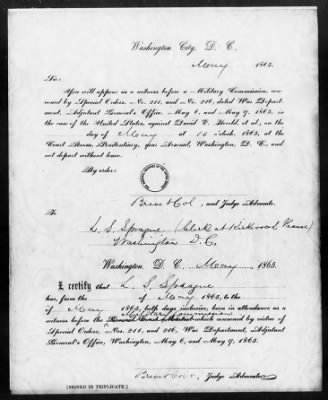 Washington City, D. C.
May 1865.
Sir:
You will appear as a witness before a Military Commission, con-
vened by Special Orders, No. 211, and No. 216, dated War Depart-
ment, Adjutant General's Office, May 6, and May 9, 1865, in
the case of the United States, against David E. Herold, et al., on the
day of May at 10 o'clock, 1865, at the
Court Room, Penitentiary, near Arsenal, Washington, D. C., and
not depart without leave.
By order:
Col., and Judge Advocate.
To
L. S. Sprague (Clerk at Kirkwood House)
Washington D.C.
Washington, D. C., May 1865.
I certify that L. S. Sprague
has, from the of May 1865, to the
of May 1865, both days inclusive, been in attendance as a
Military Commission
witness before the which convened by virtue of
Special Orders, Nos. 211, and 216, War Department, Adjutant
General's Office, Washington, May 6, and May 9, 1865.
Judge Advocate
[SIGNED IN TRIPLICATE.]